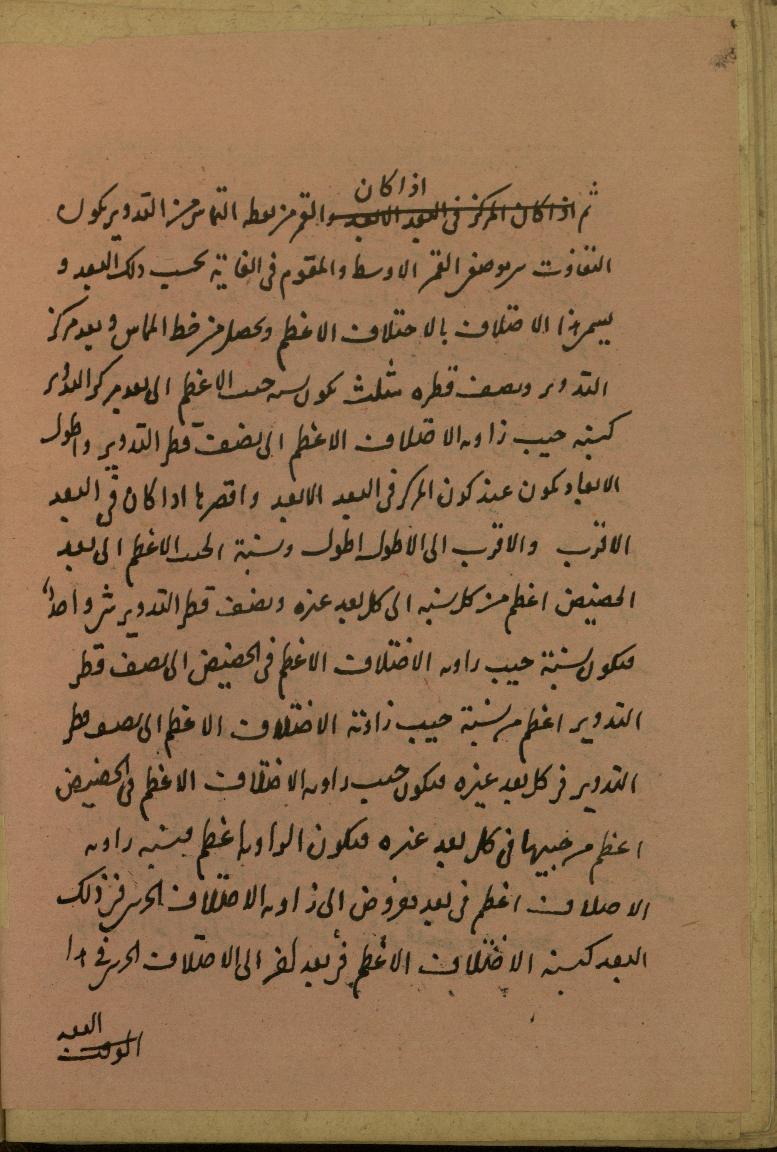 اذا كان
ثم اذا كان المركز فى البعد الابعد والقمر من نقطه التماس من التدوير يكون
التفاوت بين موضعى القمر الاوسط والمقوم فى الغاية بحسب ذلك البعد و
يسمى هذا الاختلاف بالاختلاف الاعظم ويحصل من خط المماس وبعد مركز
التدوير ونصف قطره مثلث يكون نسبه جيب الاعظم الى بعد مركز التدوير
كنسبه جيب زاويه الاختلاف الاعظم الى نصف قطر التدوير واطول
الابعاد يكون عند كون المركز فى البعد الابعد واقصرها اذا كان فى البعد
الاقرب والاقرب الى الاطول اطول ونسبة الجيب الاعظم الى بعد
الحضيض اعظم من كل نسبه الى كل بعد غيره ونصف قطر التدوير شى واحد
فيكون نسبة جيب زاويه الاختلاف الاعظم فى الحضيض الى نصف قطر
التدوير اعظم من نسبة جيب زاوية الاختلاف الاعظم الى نصف قطر
التدوير فى كل بعد غيره فيكون جيب زاويه الاختلاف الاعظم فى الحضيض
اعظم من جيبها فى كل بعد غيره فيكون الزاويه اعظم فنسبه زاويه
الاختلاف اعظم فى بعد مفروض الى زاويه الاختلاف الجزئى فى ذلك
البعد كنسبه الاختلاف الاعظم فى بعد اخر الى الاختلاف الجزئى فى هذا
البعد
الوقت